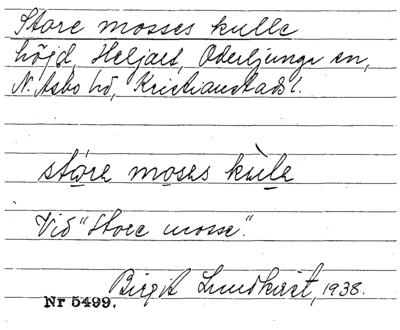 Store mosses kulle
höjd, Heljaes, Oderljunga sn,
N. Åsbo hd, Kristianstads l.
støre moses kùle
Vid "Store mosse".
Birgit Lundkvist, 1938.
Nr 5499.